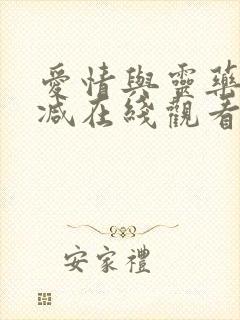 愛情與靈藥
減在綫觀看
安家禮